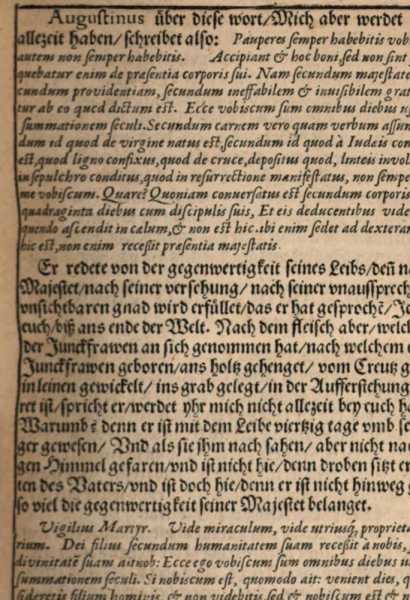 Augustinus über diese wort/Mich aber werdet
allezeit haben/schreibet also: Pauperes semper habebitis vob
autem non semper habebitis. Accipiant & hoc boni, sed non sint
quebatur enim de presentia corporis sui. Nam secundum majestate
cundum providentiam, secundum ineffabilem & invisibilem grat
tur ab eo quod dictum est. Ecce vobiscum sum omnibus diebus u
summationem seculi. Secundum carnem vero quam verbum assum
dum id quod de virgine natus est, secundum id quod à Iudæis con
est, quod ligno confixus, quod de cruce, depositus quod, linteis invol
in sepulchro conditus, quod in resurrectione manifestatus, non sempe
me vobiscum. Quare? Quoniam conversatus est secundum corporis
quadraginta diebus cum discipulis suis, Et eis deducentibus vide
quendo ascendit in cælum, & non est hic. ibi enim sedet ad dexteran
hic est, non enim recessit præsentia majestatis.
Er redete von der gegenwertigkeit seines Leibs/deñ n
Majestet/nach seiner versehung/nach seiner vnaussprech
vnsichtbaren gnad wird erfüllet/das er hat gesprochẽ/Je
euch/biß ans ende der Welt. Nach dem fleisch aber/welch
der Junckfrawen an sich genommen hat/nach welchem e
Junckfrawen geboren/ans holtz gehenget/ vom Creutz g
in leinen gewickelt/ ins grab gelegt/in der Aufferstehung
ret ist/spricht er/werdet yhr mich nicht allezeit bey euch ha
Warumb? denn er ist mit dem Leibe viertzig tage vmb se
ger gewesen/ Vnd als sie jhm nach sahen/ aber nicht na
gen Himmel gefaren/vnd ist nicht hie/denn droben sitzt er
ten des Vaters/vnd ist doch hie/denn er ist nicht hinweg g
so viel die gegenwertigkeit seiner Majestet belanget.
Vigilius Martyr. Vide miraculum, vide utriusq, proprieta
rium. Dei filius secundum humanitatem suam recessit à nobis,
divinitatẽ suam ait nob: Ecce ego vobiscum sum omnibus diebus u
summationem seculi. Si nobiscum est, quomodo ait: venient dies, q
sideretis filium hominis, & non videbitis sed & nobiscum est & n